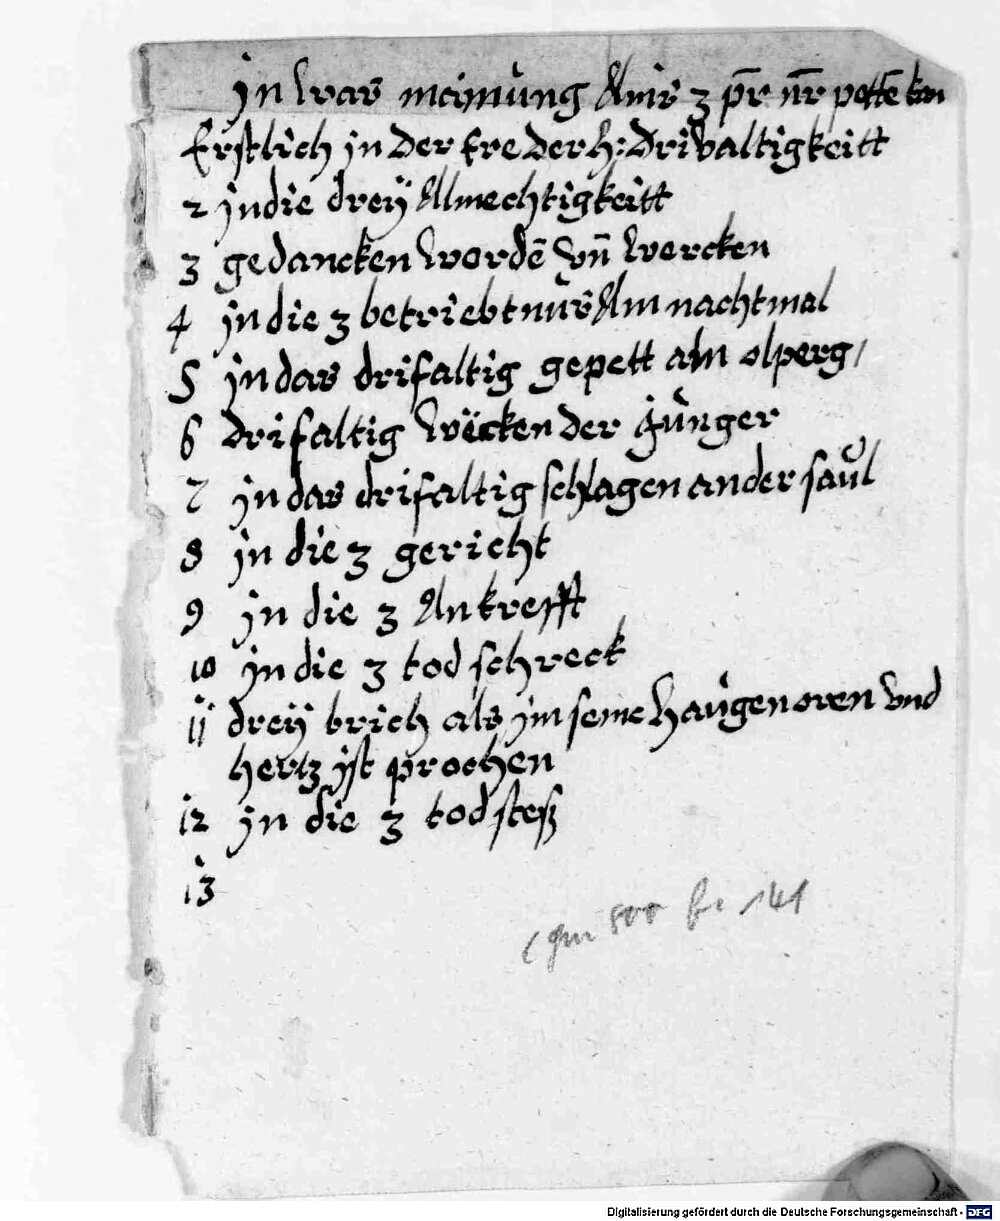 jn was mainung Ainß 3 pr̄ nr̄ pettē kan
Erstlich jn der Ere der h: drivaltigkeitt
2 jn die dreÿ Allmechtigkeitt
3 gedancken wordē vn̄ wercken
4 jn die 3 betriebtnus Am nachtmal
5 jn das drifaltig gepett am olperg/
6 drifaltig wëcken der jünger
7 jn das drifaltig schlagen an der saul
8 jn die 3 gericht
9 jn die 3 Ankrefft
10 jn die 3 tod schreck
11 dreÿ brich als jm seine haugen oren vnd
hertz jst prochen
12 jn die 3 tod steß
13
Cgm 500
141
Digitalisierung gefördert durch die Deutsche Forschungsgemeinschaft - DFG